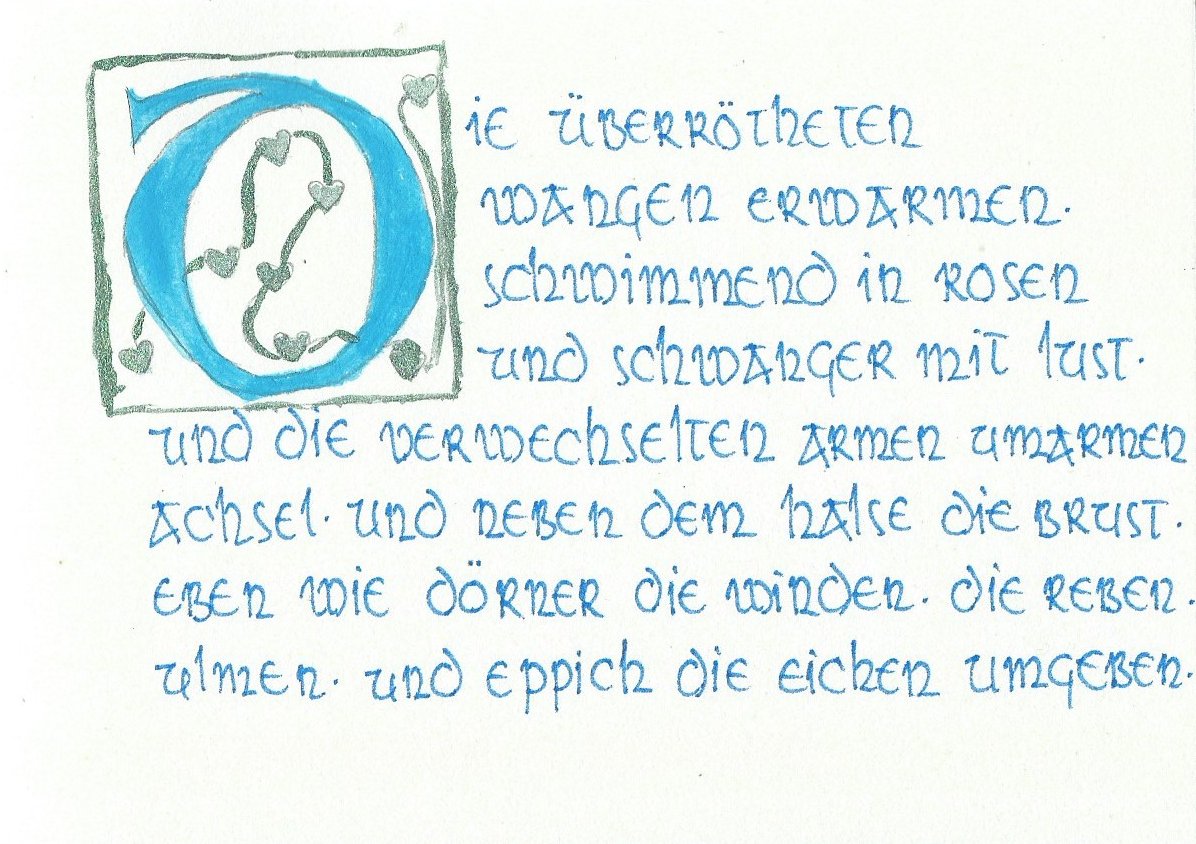 Die überrötheten
wangen erwarmen.
schwimmend in rosen
und schwanger mit lust.
und die verwechselten armen umarmen
achsel. und neben dem halse die brust.
eben wie dörner die winden. die reben.
ulmen. und eppich die eichen umgeben.